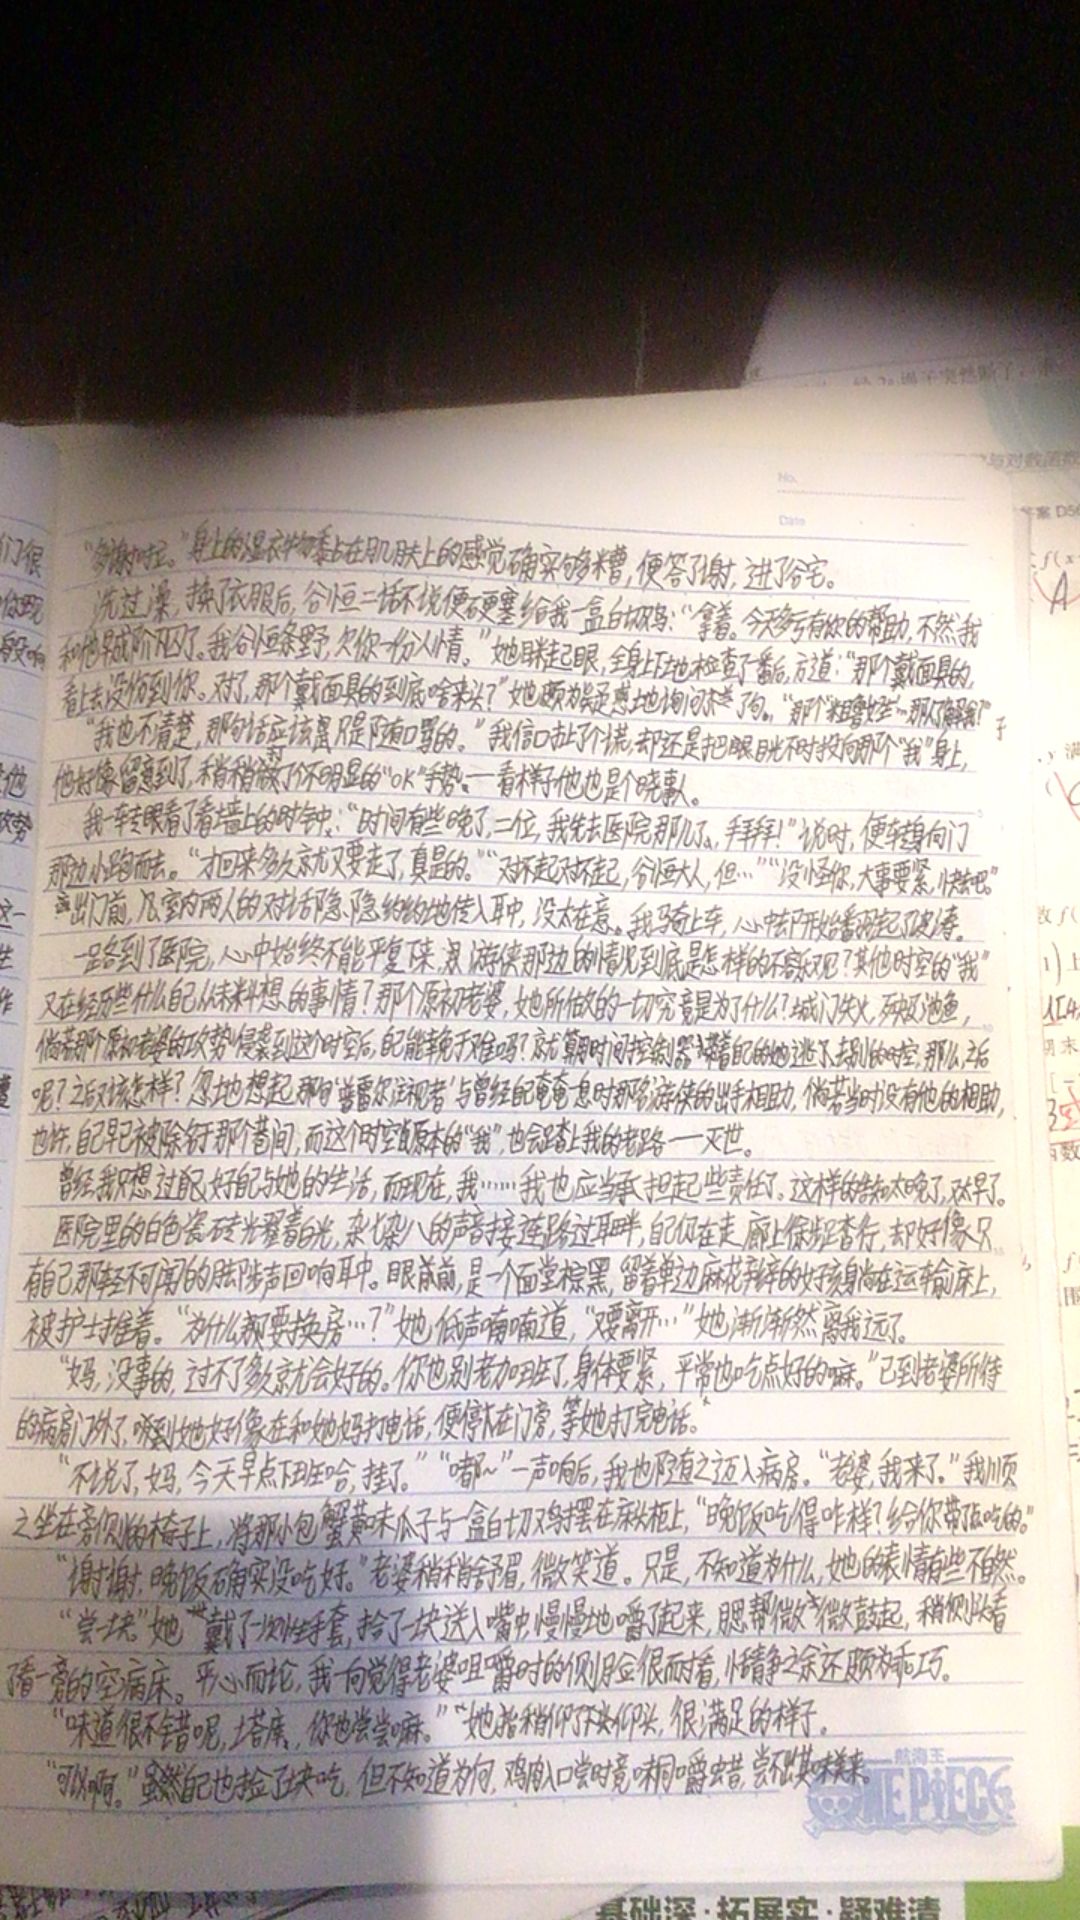 No.
Date
“多谢啦。”身上的湿衣物黏在肌肤上的感觉确实够多糟，便答了谢，进了谷宅。
洗过澡，换了衣服后，谷恒二话不说便硬塞给我一盒白切鸡：“拿着。今天多亏有你的帮助，不然我
和他早成阶下囚了。我谷恒条野，欠你一份人情。”她眯起眼，全身上下地检查了一番后，方道：“那个戴面具的，
看上去没伤到你。对了，那个戴面具的到底啥来头？”她颇为疑惑地询问了句。
“我也不清楚，那句话应该只是随口骂的。”我信口扯了个谎，却还是把眼目光不时投向那个“我”身上，
他好像留意到了，稍稍做了个不明显的“OK”手势——看样子他也是个晓事人。
我一转眼看了看墙上的时钟：“时间有些晚了，二位，我先去医院那儿了，拜拜！”说时，便转身向门
那边小跑而去。“才回来多久就又要走了，真是的。”“对不起对不起，谷恒大人，但…”“没怪你，大事要紧，快去吧。”
出门前，室内两人的对话隐隐约约地传入耳中，没太在意。我骑上车，心中却开始翻起了波涛。
一路到了医院，心中始终不能平复下来，游侠那边的情况到底是怎样的不容乐观？其他时空的“我”
又在经历些什么自己从未料想的事情？那个原初老婆，她所做的一切究竟是为了什么？城门失火，殃及池鱼，
倘若那个原初老婆的攻势侵袭到这个时空后，自己能幸免于难吗？就算用时间控制器带着自己的她逃了，去别的时空，那么，之后
呢？之后又该怎样？忽地想起，那日‘普雷尔注视者’与曾经自己奄奄一息时那名游侠的出手相助，倘若当时没有他的相助，
也许，自己早已被除名于那个昔间，而这个时空原本的“我”，也会踏上我的老路——灭世。
曾经我只想过自己，好自己与她的生活，而现在，我……我也应当承担起些责任了。这样的告知太晚了，太早了。
医院里的白色瓷砖光翟着白光，杂七杂八的声音接连路过耳畔，自己仅在走廊上徐步踏行，却好像只
有自己那轻不可闻的脚步声回响耳中。眼前，是一个面堂棕黑，留着单边麻花辫的女孩身尚在运输床上，
被护士推着。“为什么都要换房…？”她低声喃喃道，“又要离开…”她渐渐然离我远了。
“妈，没事的，过不了多久就会好的。你也别老加班了，身体要紧，平常也吃点好的嘛。”已到老婆所待
的病房门外了，听到她好像在和她妈打电话，便停在门旁，等她打完电话。
“不说了，妈，今天早点下班哈，挂了。”“嘟~”一声响后，我也随之迈入病房。“老婆，我来了。”我顺
之坐在旁侧的椅子上，将那小包蟹黄味瓜子与一盒白切鸡摆在床头柜上，“晚饭吃得咋样？给你带点吃的。”
“谢谢，晚饭确实没吃好。”老婆稍稍舒眉，微笑道。只是，不知道为什么，她的表情有些不自然。
“尝一块。”她戴了一次性手套，拾了一块送入嘴中，慢慢地嚼了起来，腮帮微微鼓起，稍侧头看
了看一旁的空病床。平心而论，我一向觉得老婆咀嚼时的侧脸很耐看，恬静之余还颇为乖巧。
“味道很不错呢，塔库，你也尝尝嘛。”她稍仰了下头，很满足的样子。
“可以啊。”虽然自己也捡了块吃，但不知道为何，鸡肉入口尝时竟味同嚼蜡，尝不出其味来。
航海王
ONE PIECE
基础深·拓展实·疑难清